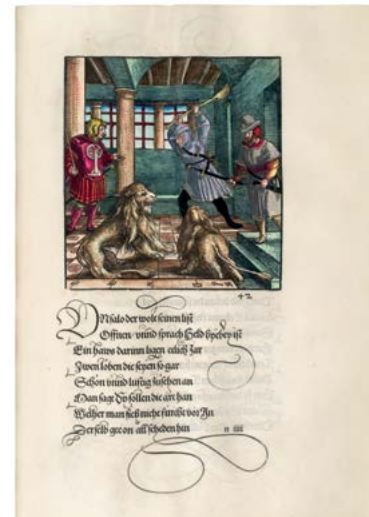 42
Unfalo der wolt seinen list
Offnen vnnd sprach Held hyebey ist
Ein haws darinn ligen etlich Jar
Zwen loben die seyen so gar
Schön vnnd lustig zusehen an
Man sagt Sy sollen die art han
Welher man sich nicht fürcht vor In
Derselb gee on all scheden hin
n iiii